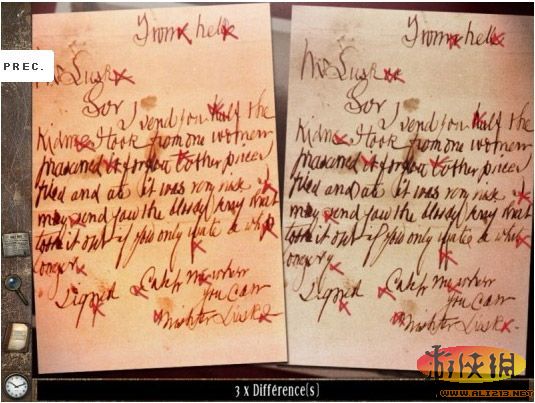 PREC.
From hell
Mr Lusk
Sor
I send you half the
Kidne I took from one women
prasarved it for you tother piece I
fried and ate it was very nise I
may send you the bloody knif that
took it out if you only wate a whil
longer
Signed Catch me when
you can
Mishter Lusk
From hell
Mr Lusk
Sor
I send you half the
Kidne I took from one women
prasarved it for you tother piece I
fried and ate it was very nise I
may send you the bloody knif that
took it out if you only wate a whil
longer
Signed Catch me when
you can
Mishter Lusk
3 x Différence(s)
游侠网
WWW.ALI213.NET